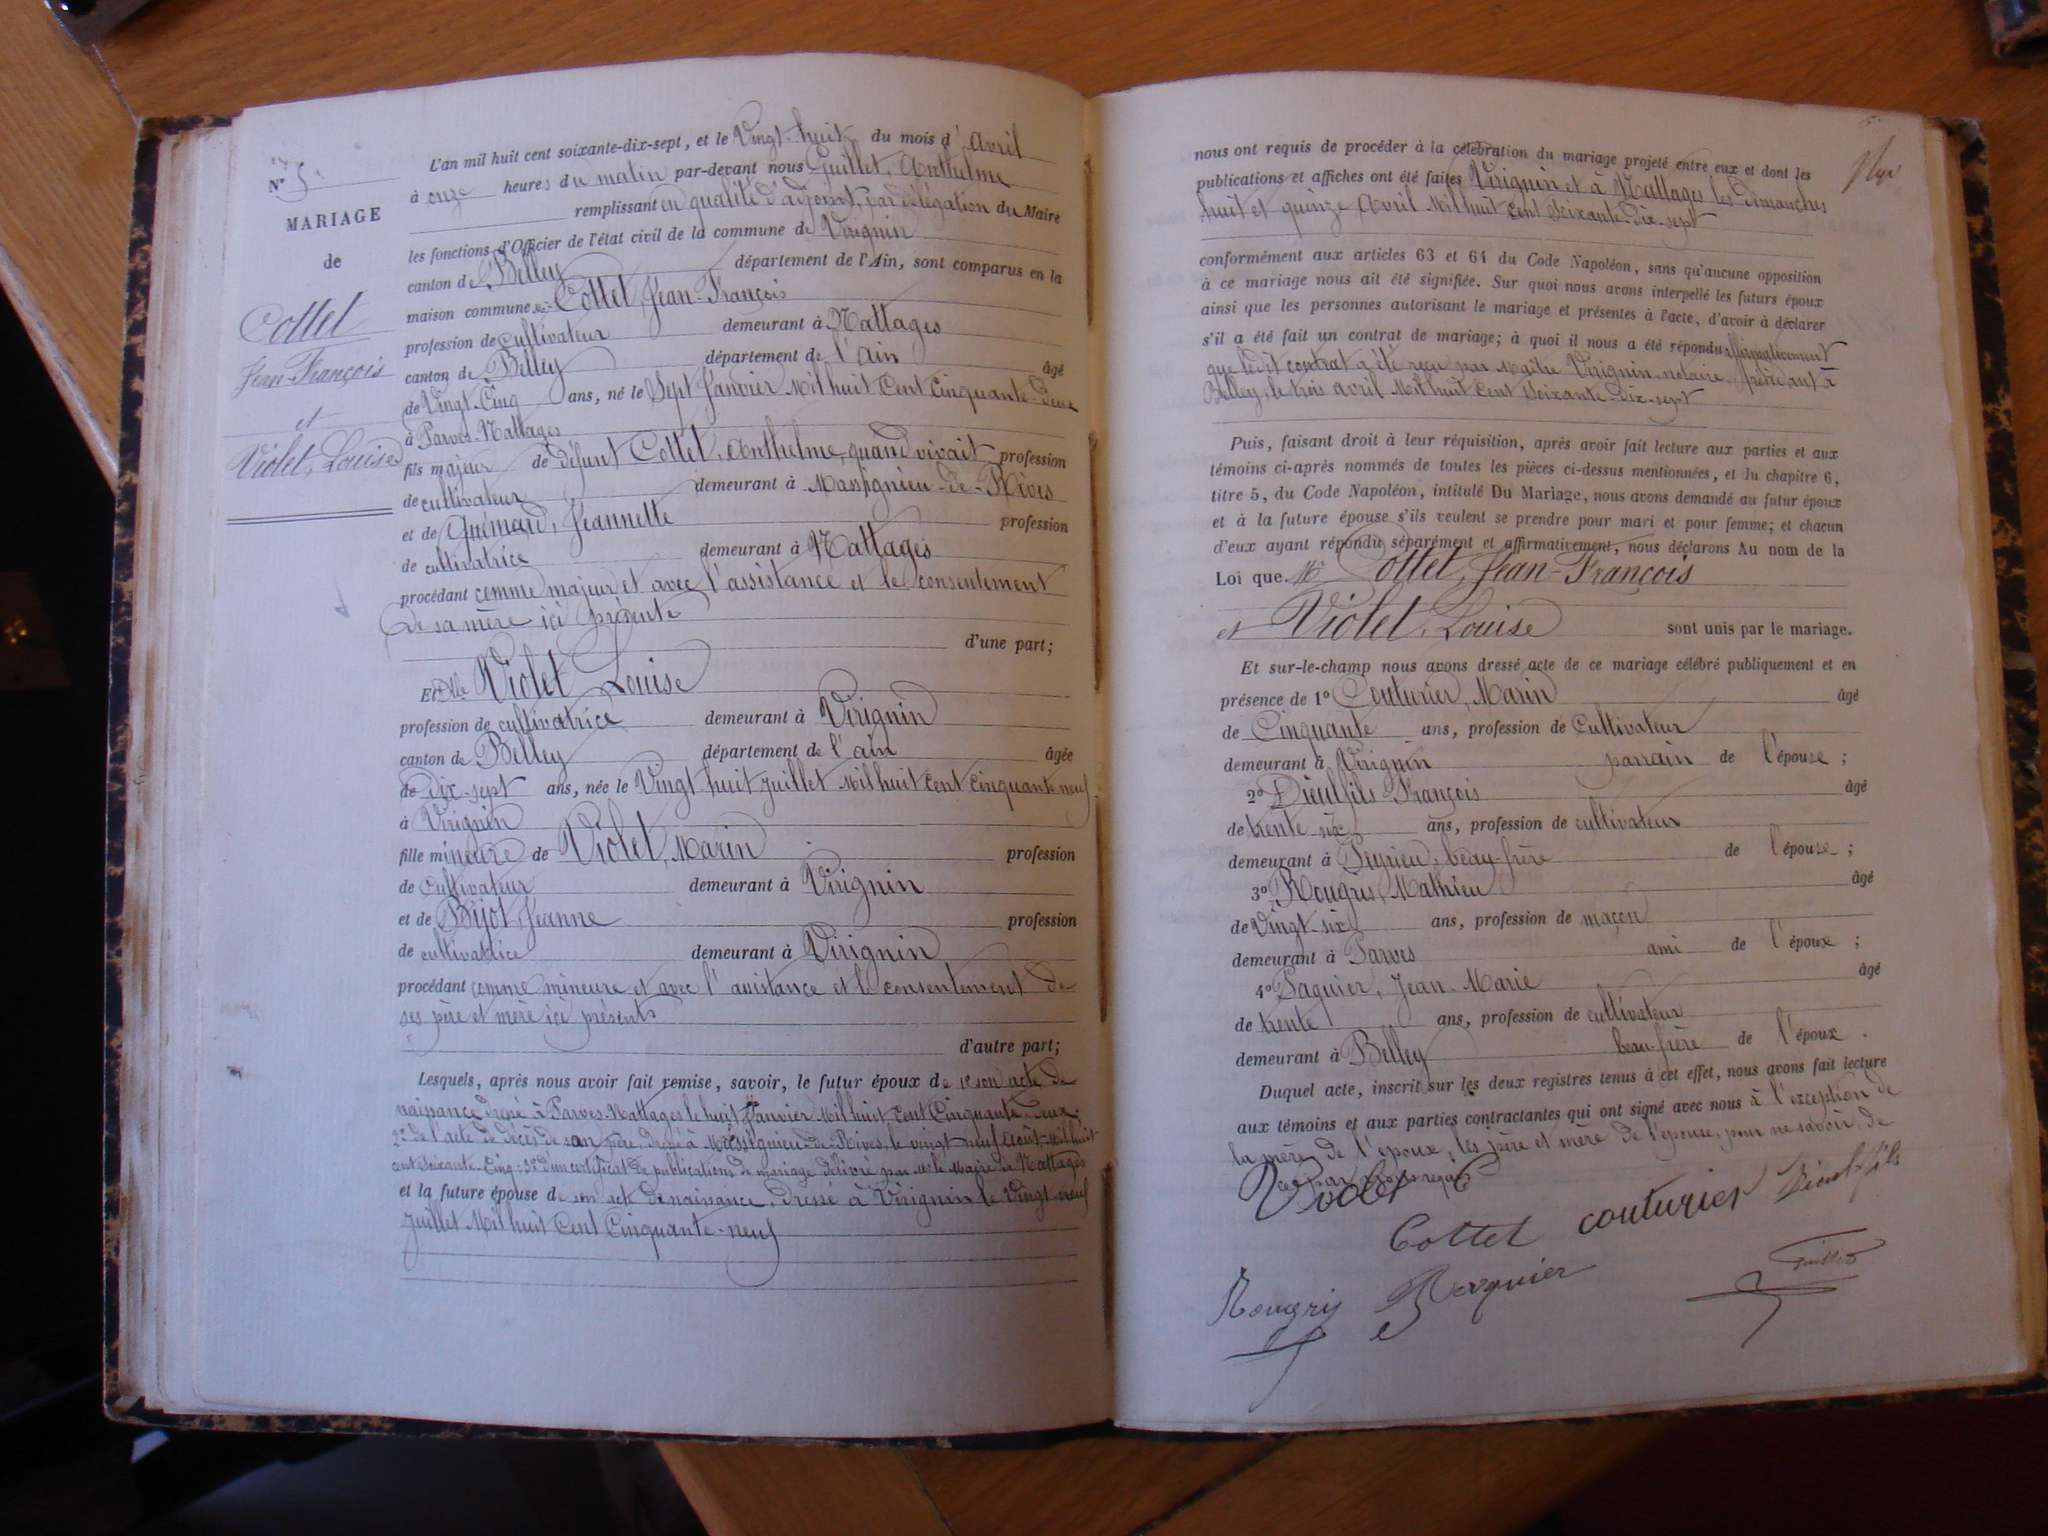 N° 5
MARIAGE
de
Cottet
Jean-François
et
Violet, Louise
L'an mil huit cent soixante-dix-sept, et le Vingt-huit du mois d'Avril
à onze heures du matin par-devant nous Guillet, Anthelme
remplissant en qualité d'adjoint, par délégation du Maire
les fonctions d'Officier de l'état civil de la commune de Virignin
canton de Belley département de l'Ain, sont comparus en la
maison commune Cottet, Jean-François
profession de cultivateur demeurant à Nattages
canton de Belley département de l'ain âgé
de Vingt-Cinq ans, né le Sept Janvier Mil huit Cent Cinquante-deux
à Parves-Nattages
fils majeur de défunt Cottet, Anthelme, quand vivait profession
de cultivateur demeurant à Massignieu-de-Rives
et de Guémard, Jeannette profession
de cultivatrice demeurant à Nattages
procédant comme majeur et avec l'assistance et le consentement
de sa mère ici présente
d'une part;
Et Dlle Violet Louise
profession de cultivatrice demeurant à Virignin
canton de Belley département de l'ain âgée
de Dix-sept ans, née le Vingt-huit Juillet Mil huit Cent Cinquante-neuf
à Virignin
fille mineure de Violet, Marin profession
de Cultivateur demeurant à Virignin
et de Bijot Jeanne profession
de cultivatrice demeurant à Virignin
procédant comme mineure et avec l'assistance et le consentement de
ses père et mère ici présents
d'autre part;
Lesquels, après nous avoir fait remise, savoir, le futur époux de 1° son acte de
naissance dressé à Parves-Nattages le huit Janvier Mil huit Cent Cinquante-deux;
2° de l'acte de décès de son père, dressé à Massignieu-de-Rives, le vingt-neuf Août Mil huit
cent Soixante-Cinq; 3° d'un certificat de publications de mariage délivré par Mr le Maire de Nattages
et la future épouse de son acte de naissance, dressé à Virignin le Vingt-neuf
Juillet Mil huit Cent Cinquante-neuf
nous ont requis de procéder à la célébration du mariage projeté entre eux et dont les
publications et affiches ont été faites Virignin et à Nattages les dimanches
huit et quinze Avril Mil huit Cent Soixante-dix-sept
conformément aux articles 63 et 64 du Code Napoléon, sans qu'aucune opposition
à ce mariage nous ait été signifiée. Sur quoi nous avons interpellé les futurs époux
ainsi que les personnes autorisant le mariage et présentes à l'acte, d'avoir à déclarer
s'il a été fait un contrat de mariage; à quoi il nous a été répondu affirmativement
que ledit contrat a été reçu par Maître Virignin notaire résidant à
Belley, le trois avril Mil huit Cent Soixante-Dix-sept
Puis, faisant droit à leur réquisition, après avoir fait lecture aux parties et aux
témoins ci-après nommés de toutes les pièces ci-dessus mentionnées, et lu chapitre 6,
titre 5, du Code Napoléon, intitulé Du Mariage, nous avons demandé au futur époux
et à la future épouse s'ils veulent se prendre pour mari et pour femme; et chacun
d'eux ayant répondu séparément et affirmativement, nous déclarons Au nom de la
Loi que Mr Cottet, Jean-François
et Violet, Louise sont unis par le mariage.
Et sur-le-champ nous avons dressé acte de ce mariage célébré publiquement et en
présence de 1° Couturier, Marin âgé
de Cinquante ans, profession de Cultivateur
demeurant à Virignin parrain de l'épouse;
2° Dieulfils François âgé
de trente six ans, profession de cultivateur
demeurant à Peyrieu, beau-frère de l'épouse;
3° Rougris, Mathieu âgé
de Vingt-six ans, profession de maçon
demeurant à Parves ami de l'époux;
4° Paquier, Jean-Marie âgé
de trente ans, profession de cultivateur
demeurant à Belley beau-frère de l'époux.
Duquel acte, inscrit sur les deux registres tenus à cet effet, nous avons fait lecture
aux témoins et aux parties contractantes qui ont signé avec nous à l'exception de
la mère de l'époux, les père et mère de l'épouse, pour ne savoir, de
Violet
Cottet couturier Dieulfils
Rougris Paquier Guillet